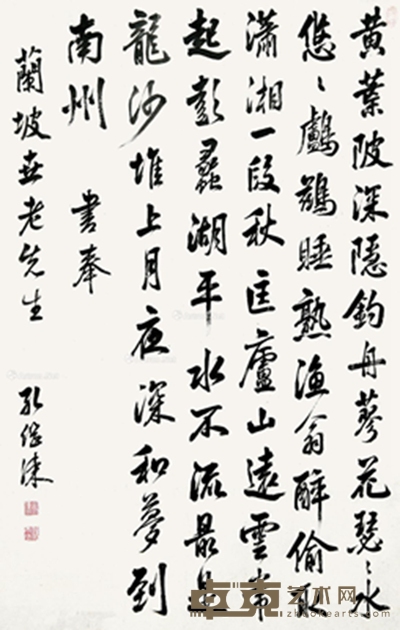 黄葉陂深隱釣舟蓼花瑟〻水
悠〻鸕鶿睡熟漁翁醉偷取
瀟湘一段秋匡廬山遠雲常
起彭蠡湖平水不流最是
龍沙堆上月夜深和夢到
南州 書奉
蘭坡世老先生
孔繼涑
卓克艺术网
zhuokearts.com